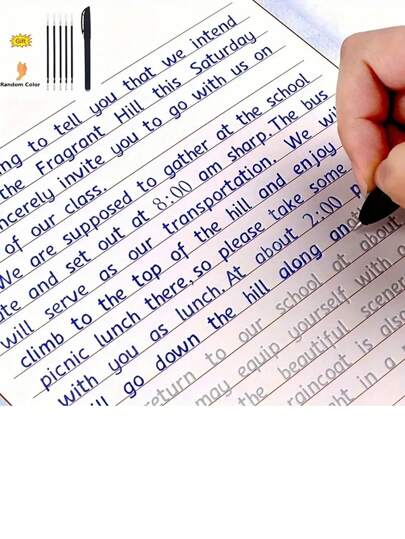 Gift
Random Color
ng to tell you that we intend
the Fragrant Hill this Saturday
ncerely invite you to go with us on
of our class.
We are supposed to gather at the school
te and set out at 8:00 am sharp. The bus
will serve as our transportation. We wi
climb to the top of the hill and enjoy
picnic lunch there, so please take some
with you as lunch. At about 2:00 p
ll go down the hill along anot
return to our school at about
may equip yourself with a
the beautiful scener
raincoat is also
ht in a